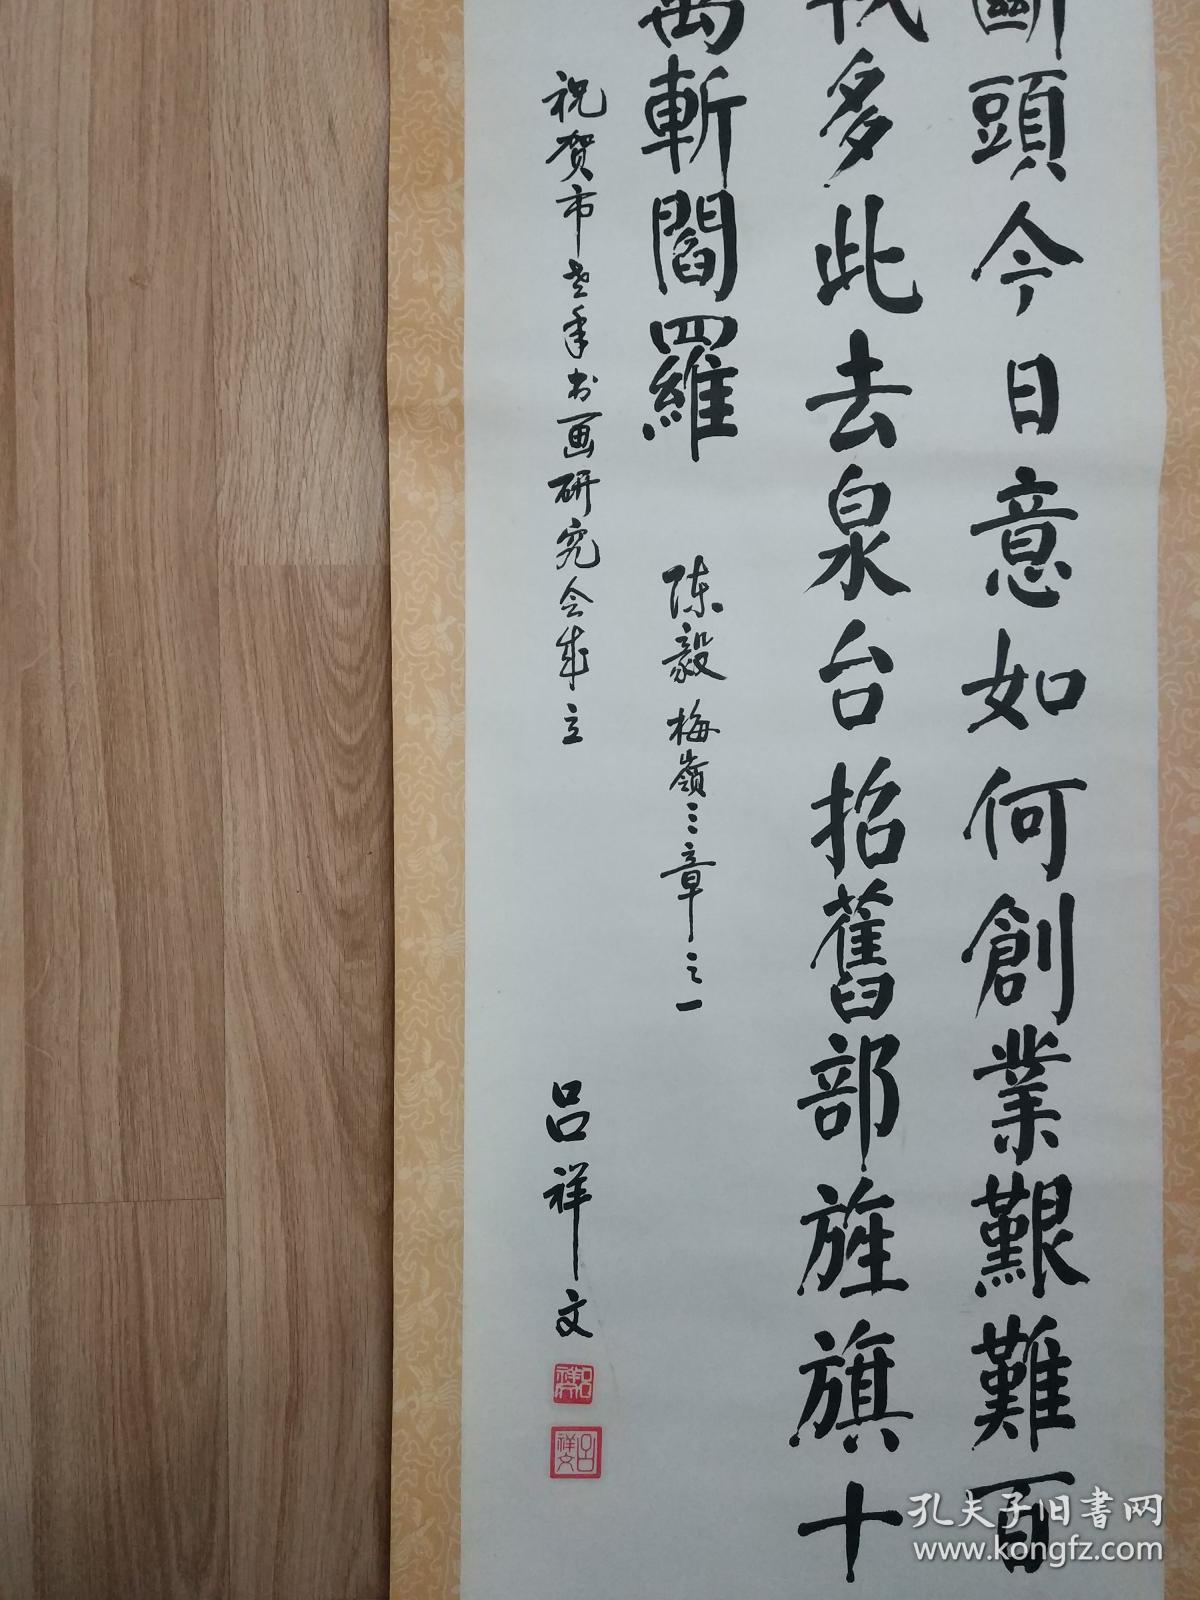 斷頭今日意如何創業艱難百
戰多此去泉台招舊部旌旗十
萬斬閻羅
陈毅梅嶺三章之一
祝贺市老年书画研究会成立
吕祥文
吕祥文
孔夫子旧書网
www.kongfz.com